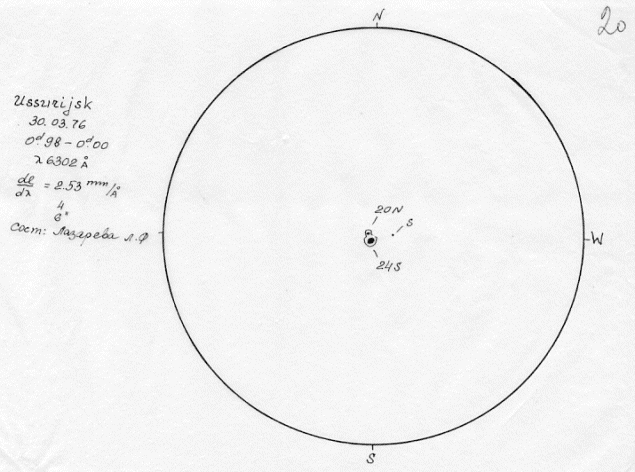 20
N
Ussurijsk
30.03.76
0ᵈ98 – 0ᵈ00
λ 6302 Å
dl/dλ = 2.53 mm/Å
4
6"
Сост: Лазарева Л.Ф
20N
S
24S
W
S